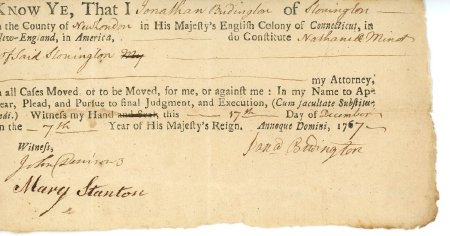 KNOW YE, That I Jonathan Bedington of Stonington
in the County of New London in His Majesty's English Colony of Connecticut, in
New-England, in America, do Constitute Nathaniel Minot
of said Stonington My
my Attorney,
in all Cases Moved or to be Moved, for me, or against me: In my Name to Ap-
pear, Plead, and Pursue to final Judgment, and Execution, (Cum facultate Substitu-
endi.) Witness my Hand and Seal, this 17th Day of December
in the 7th Year of His Majesty's Reign. Annoque Domini, 1767
Witness,
John Denison 3
Mary Stanton
Jond Bedington